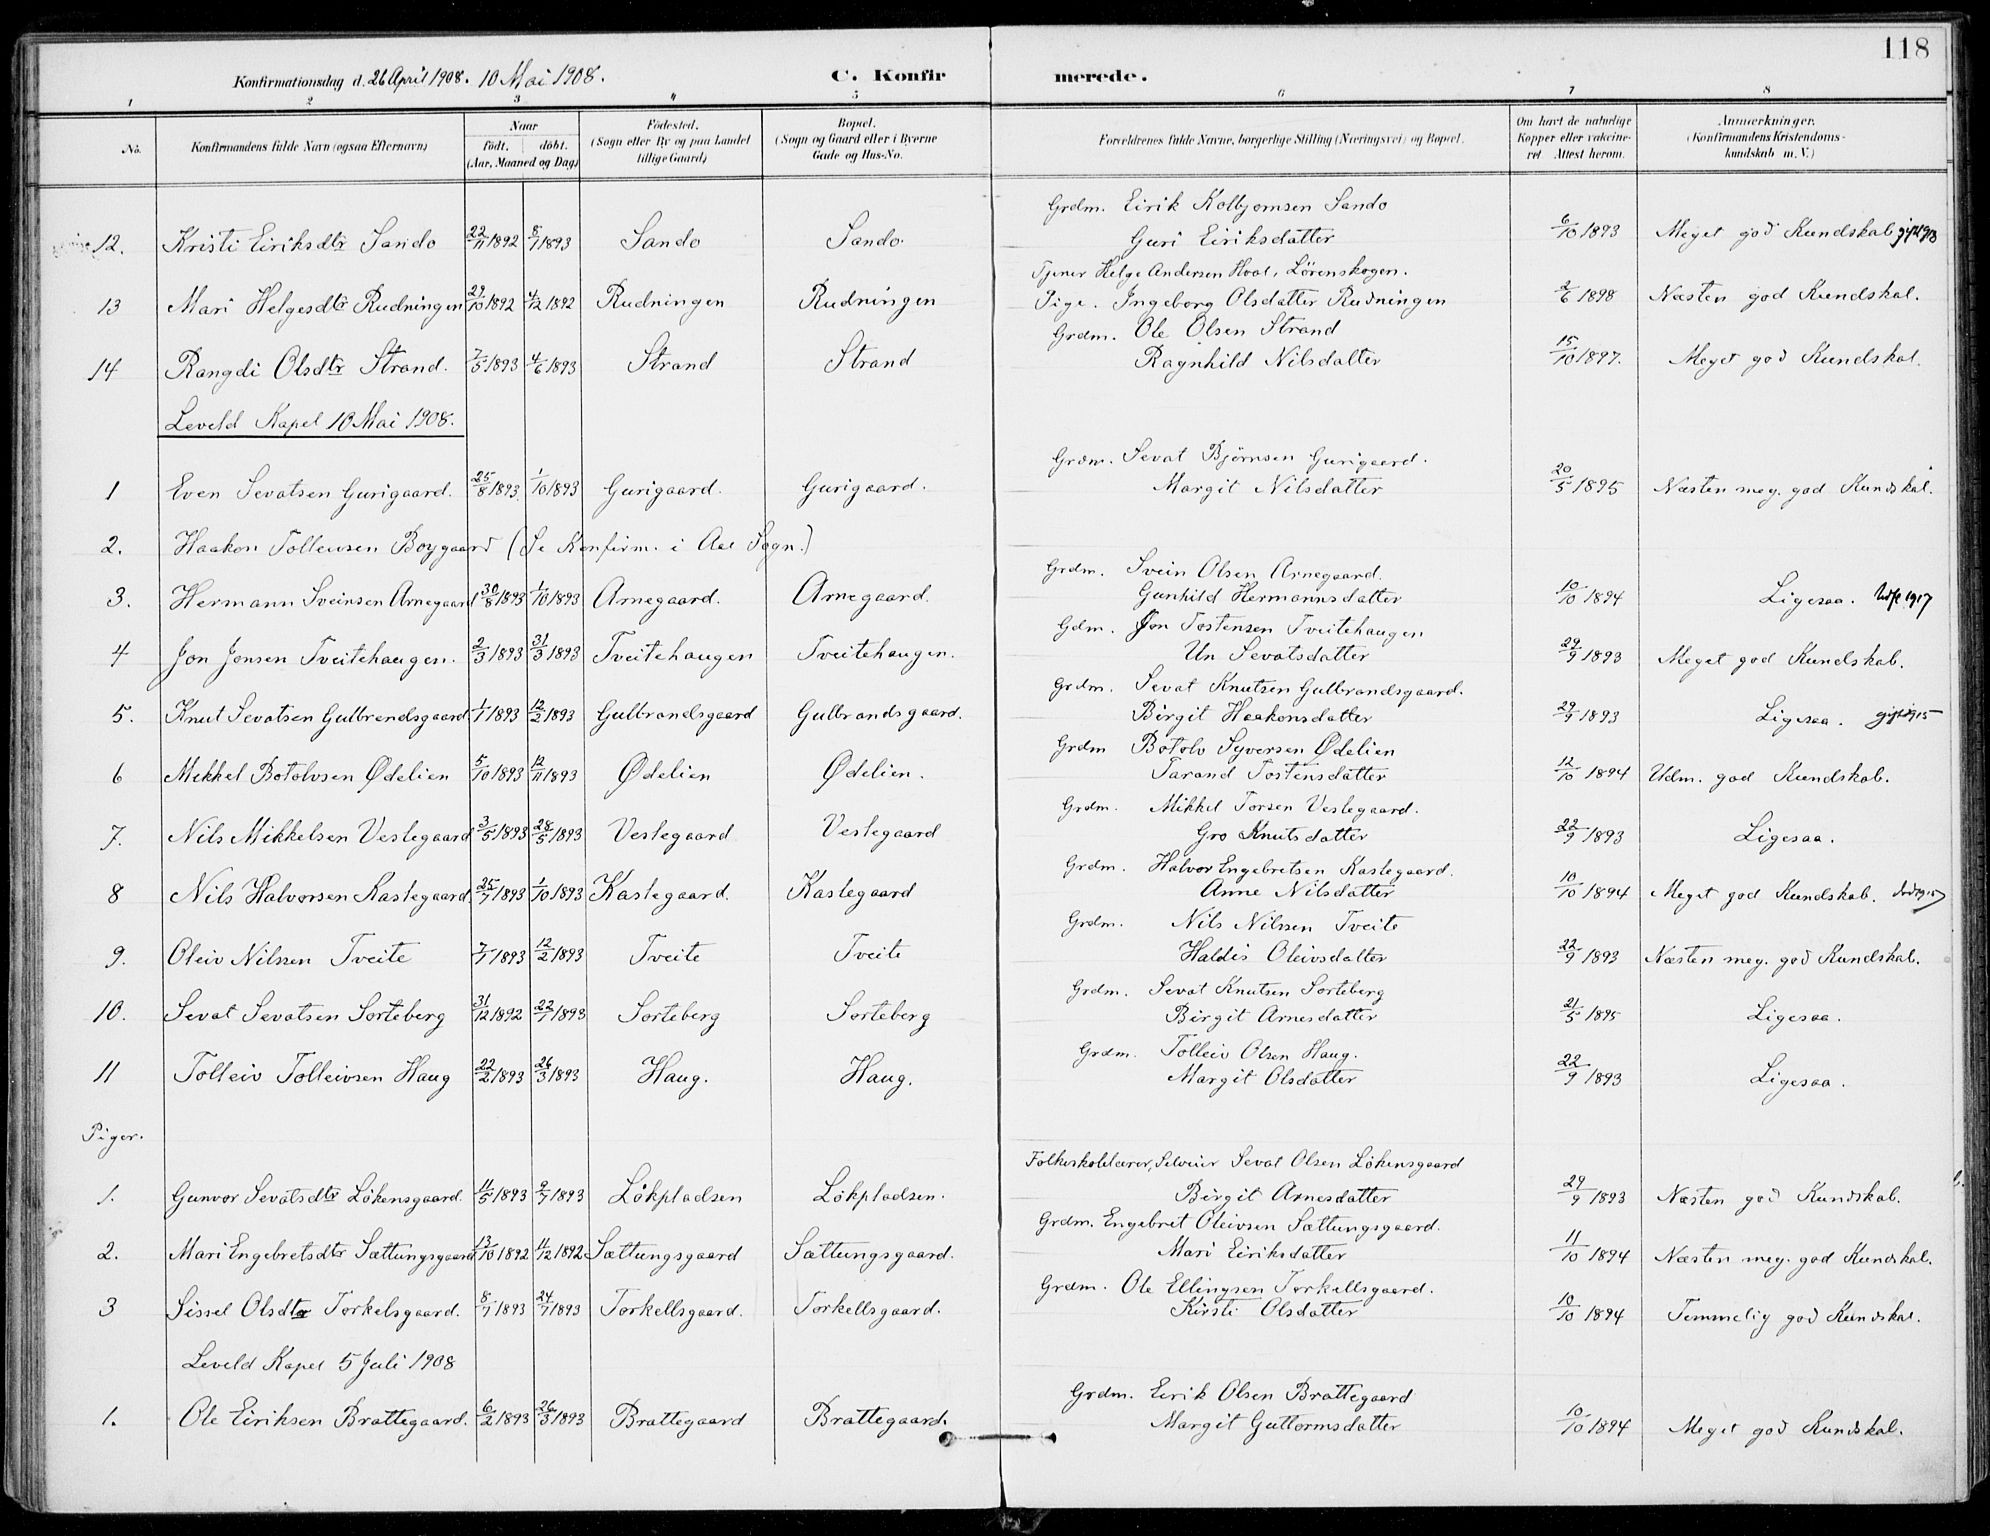 118
Konfirmationsdag d. 26 April 1908. 10 Mai 1908. C. Konfirmerede.
1 2 3 4 5 6 7 8
No. Konfirmandens fulde Navn (ogsaa Efternavn) Naar födt. döbt. (Aar, Maaned og Dag) Födested. (Sogn eller By og paa Landet tillige Gaard) Bopæl. (Sogn og Gaard eller i Byerne Gade og Hus-No. Forældrenes fulde Navne, borgerlige Stilling (Næringsvei) og Bopæl. Om havt de naturlige Kopper eller vakcineret Attest herom. Anmærkninger. (Konfirmandens Kristendomskundskab m. V.)
Grdm. Eirik Kolbjornsen Sando
12. Kristi Eiriksdtr Sando 22/11 1892 8/1 1893 Sando Sando. Guri Eiriksdatter 6/10 1893 Meget god Kundskab gift 1913
Tjener Helge Andersen Hoal, Lörenskogen.
13 Mari Helgesdtr Rudningen 29/10 1892 4/12 1892 Rudningen Rudningen Pige. Ingeborg Olsdatter Rudningen 2/6 1898 Næsten god Kundskal.
Grdm. Ole Olsen Strand
14 Rangdi Olsdtr Strand. 7/5 1893 4/6 1893 Strand Strand Ragnhild Nilsdatter 15/10 1897. Meget god Kundskal.
Leveld Kapel 10 Mai 1908.
Grdm. Sevat Björnsen Gurigaard.
1 Even Sevatsen Gurigaard. 25/8 1893 1/10 1893 Gurigaard. Gurigaard. Margit Nilsdatter 20/5 1895 Næsten meg. god Kundskal.
2. Haakon Tolleivsen Boygaard (Se Konfirm. i Aal Sogn.)
Grdm. Svein Olsen Arnegaard.
3. Hermann Sveinsen Arnegaard 30/8 1893 1/10 1893 Arnegaard. Arnegaard. Gunhild Hermannsdatter 10/10 1894 Ligesaa. 1917
Gdm. Jon Tostensen Tveitehaugen
4 Jon Jonsen Tveitehaugen. 2/3 1893 31/3 1893 Tveitehaugen Tveitehaugen. Un Sevatsdatter 29/9 1893 Meget god Kundskab.
Grdm. Sevat Knutsen Gulbrandsgaard.
5. Knut Sevatsen Gulbrandsgaard 1/1 1893 12/2 1893 Gulbrandsgaard Gulbrandsgaard. Birgit Haakonsdatter 29/9 1893 Ligesaa. gift 1915
Grdm Botolv Syversen Ødelien
6 Mikkel Botolvsen Ødelien 5/10 1893 12/11 1893 Ødelien Ødelien. Tarand Tostensdatter 12/10 1894 Udm. god Kundskab.
Grdm. Mikkel Torsen Vestegaard.
7. Nils Mikkelsen Vestegaard 3/5 1893 28/5 1893 Vestegaard Vestegaard Gro Knutsdatter 22/9 1893 Ligesaa.
Grdm. Halvor Engebretsen Kastegaard.
8 Nils Halvorsen Kastegaard. 25/7 1893 1/10 1893 Kastegaard. Kastegaard Anne Nilsdatter 10/10 1894 Meget god Kundskab.
Grdm. Nils Nilssen Tveite
9. Oleiv Nilssen Tveite 7/1 1893 12/2 1893 Tveite Tveite Haldis Oleivsdatter 22/9 1893 Næsten meg. god Kundskab.
Grdm. Sevat Knutsen Sorteberg
10. Sevat Sevatsen Sorteberg 31/12 1892 22/1 1893 Sorteberg Sorteberg Birgit Arnesdatter 21/5 1895 Ligesaa.
Grdm. Tolleiv Olsen Haug.
11 Tolleiv Tolleivsen Haug 22/2 1893 26/3 1893 Haug. Haug. Margit Olsdatter 22/9 1893 Ligesaa.
Piger.
Folkeskolelærer, Selveier Sevat Olsen Lökensgaard
1. Gunvor Sevatsdtr Lökensgaard. 11/5 1893 9/7 1893 Lökpladsen Lökpladsen. Birgit Arnesdatter 29/9 1893 Næsten god Kundskab.
Grdm. Engebret Oleivsen Sættungsgaard.
2. Mari Engebretsdtr Sættungsgaard 13/10 1892 11/12 1892 Sættungsgaard Sættungsgaard. Mari Eiriksdatter 11/10 1894 Næsten meg. god Kundskal.
Grdm. Ole Ellingsen Torkellsgaard.
3 Sissel Olsdtr Torkelsgaard. 8/7 1893 24/7 1893 Torkellsgaard. Torkellsgaard. Kirsti Olsdatter 10/10 1894 Temmelig god Kundskal.
Leveld Kapel 5 Juli 1908
Grdm. Eirik Olsen Brattegaard
1. Ole Eiriksen Brattegaard. 6/2 1893 26/3 1893 Brattegaard Brattegaard. Margit Guttormsdatter 10/10 1894 Meget god Kundskal.